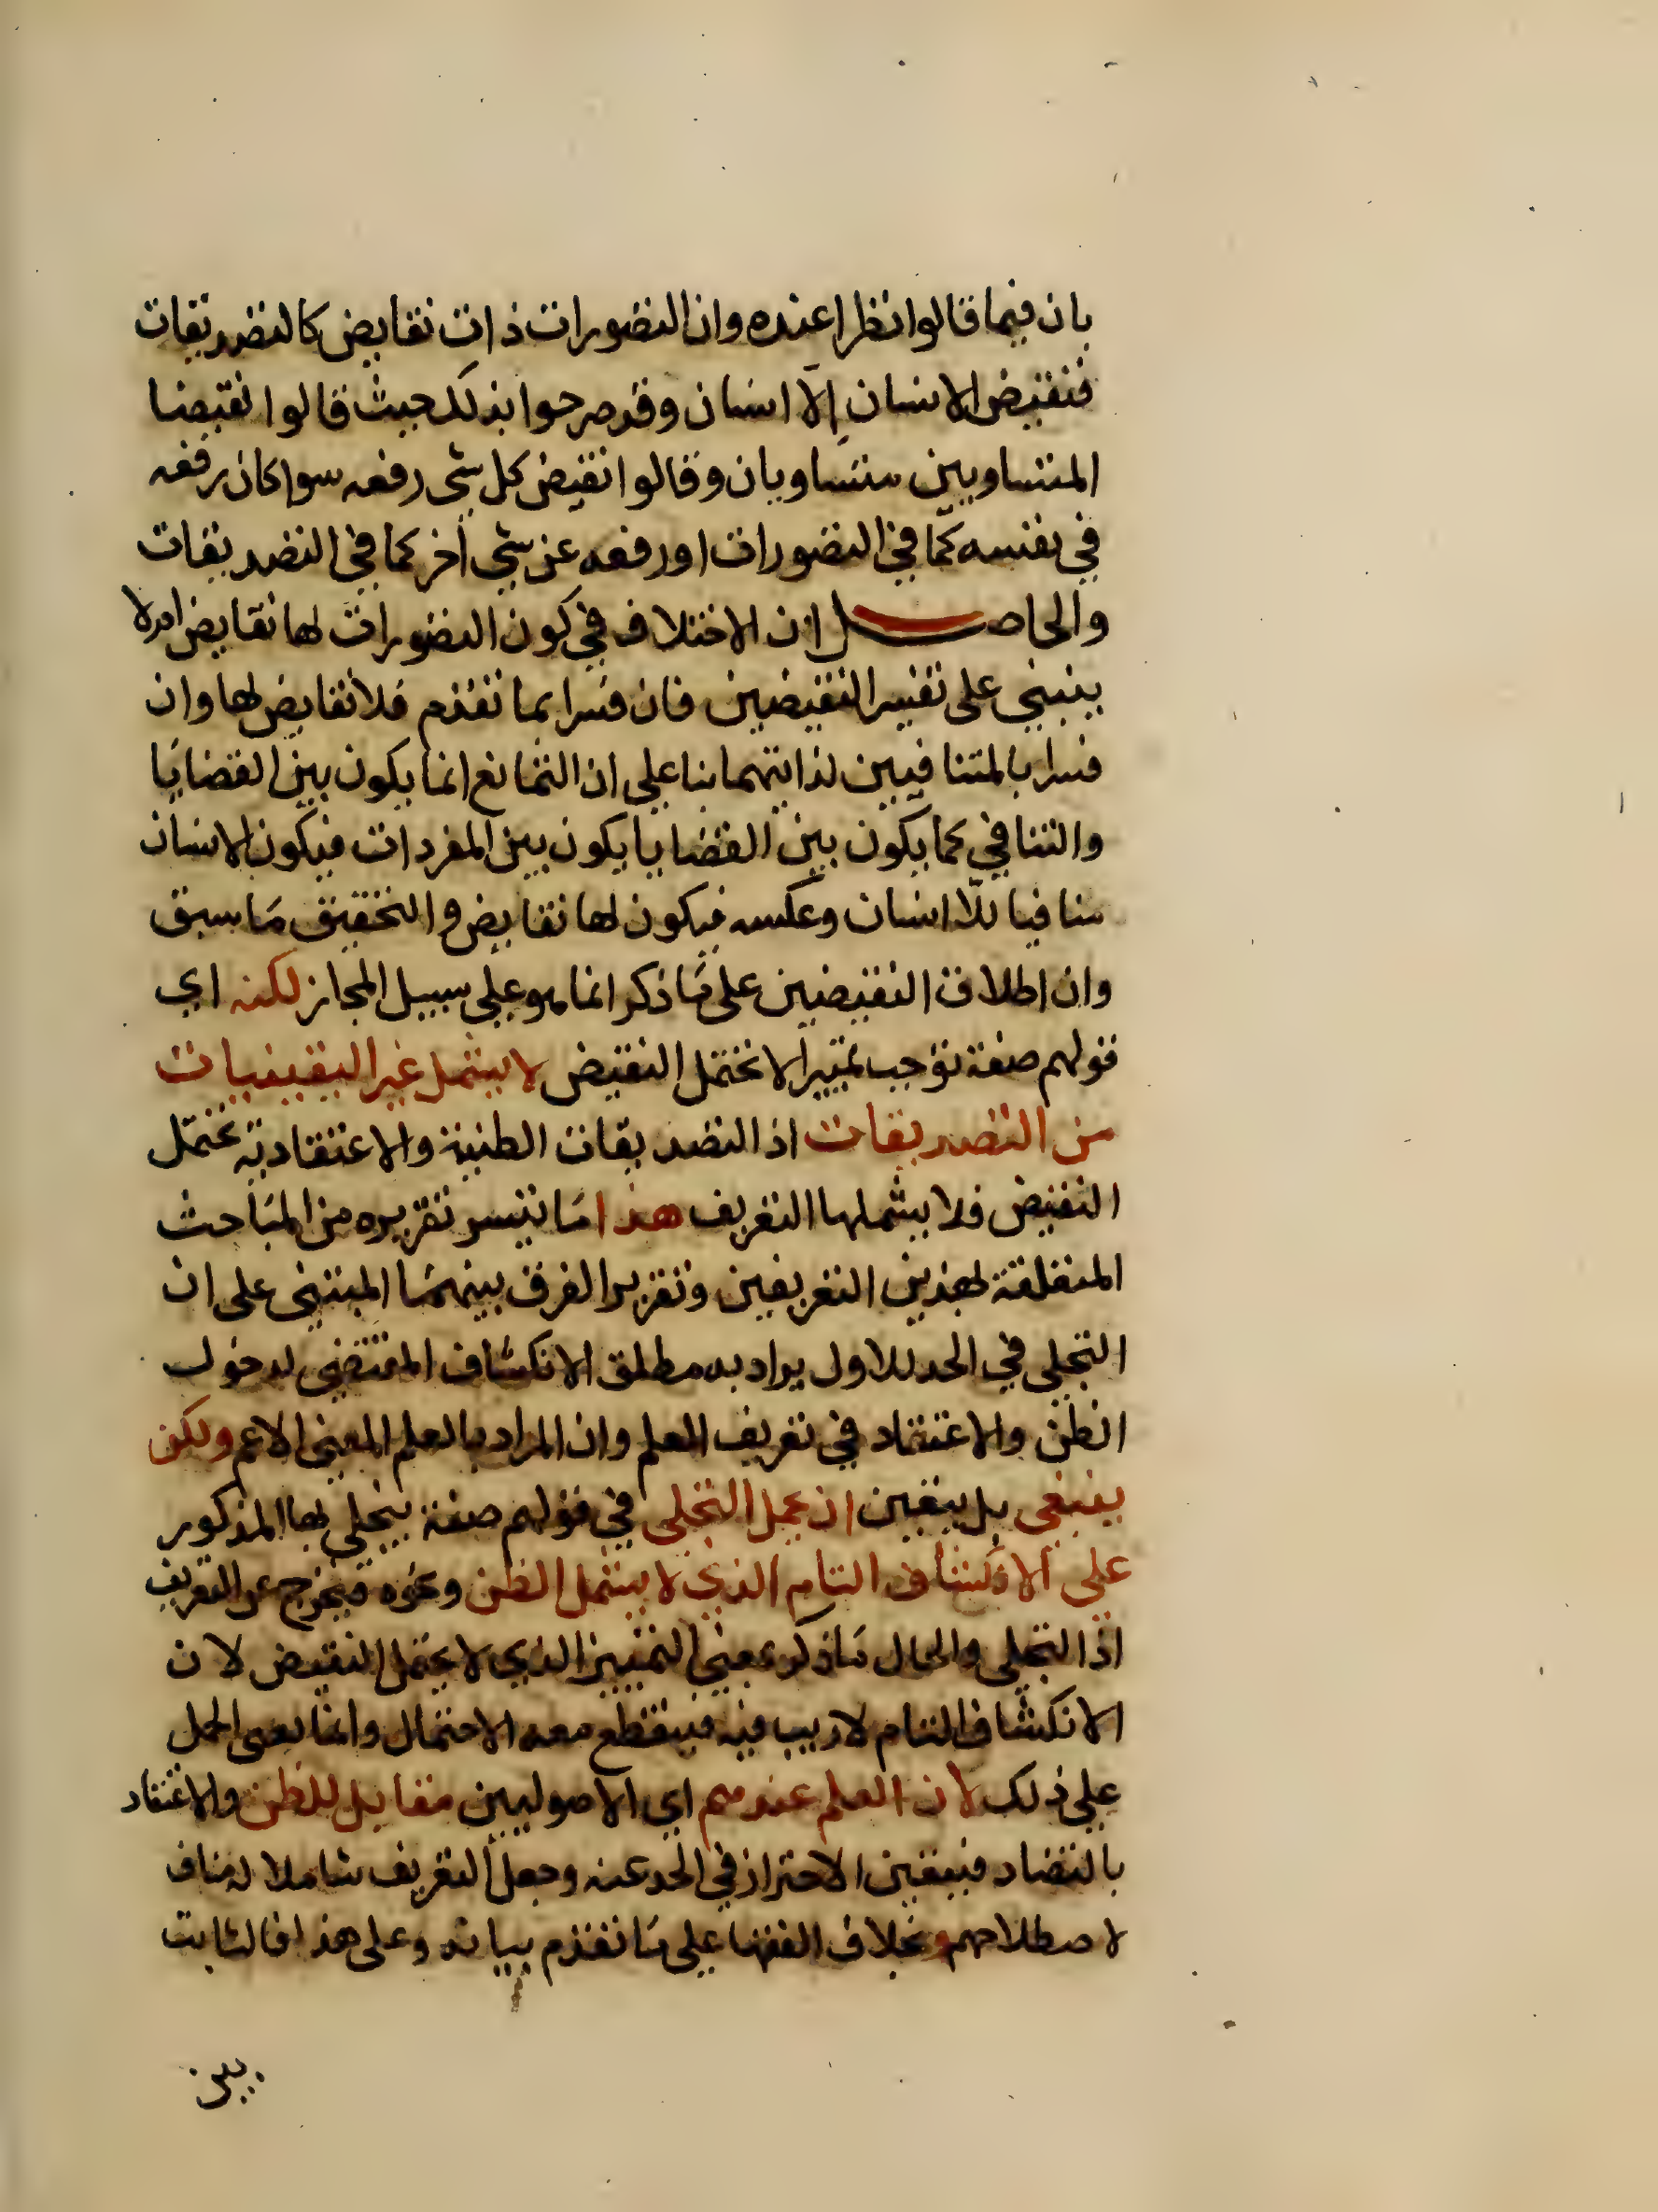 بان فيما قالوا نظرا عنده وان التصورات ذات نقايض كالتصديقات
فنقيض الانسان الا انسان وقد صرحوا بذلك حيث قالوا نقيضا
المتساويين متساويان وقالوا نقيض كل شي رفعه سوا كان رفعه
في نفسه كما في التصورات او رفعه عن شي اخر كما في التصديقات
والحاصل ان الاختلاف في كون التصورات لها نقايض ام لا
ينبني على تفسير النقيضين فان فسرا بما تقدم فلا نقايض لها وان
فسرا بالمتنافيين لذاتيهما بنا على ان التمانع انما يكون بين القضايا
والتنافي كما يكون بين القضايا يكون بين المفردات فيكون الانسان
منافيا للا انسان وعكسه فيكون لها نقايض والتحقيق ما سبق
وان اطلاق النقيضين على ما ذكر انما هو على سبيل المجاز لكنه اي
قولهم صفة توجب تمييزا لا تحتمل النقيض لا يشمل غير اليقينيات
من التصديقات اذ التصديقات الظنية والاعتقادية تحتمل
النقيض فلا يشملها التعريف هذا ما تيسر تقريره من المباحث
المتعلقة بهذين التعريفين وتقرير الفرق بينهما المبتني على ان
التجلي في الحد للاول يراد به مطلق الانكشاف المقتضي لدخول
الظن والاعتقاد في تعريف العلم وان المراد بالعلم المعنى الاعم ولكن
ينبغي بل يتعين ان يحمل التجلي في قولهم صفة يتجلى بها المذكور
على الانكشاف التام الذي لا يشمل الظن ونحوه فيخرج عن التعريف
اذ التجلي والحال ما ذكر بمعنى التمييز الذي لا يحتمل النقيض لان
الانكشاف التام لا ريب فيه فينقطع معه الاحتمال وانما الحمل
على ذلك لان العلم عندهم اي الاصوليين مقابل للظن والاعتقاد
بالتضاد فيتعين الاحتراز في الحد عنه وجعل التعريف شاملا له مناف
لاصطلاحهم وبخلاف الفقها على ما تقدم بيانه وعلى هذا فالثابت